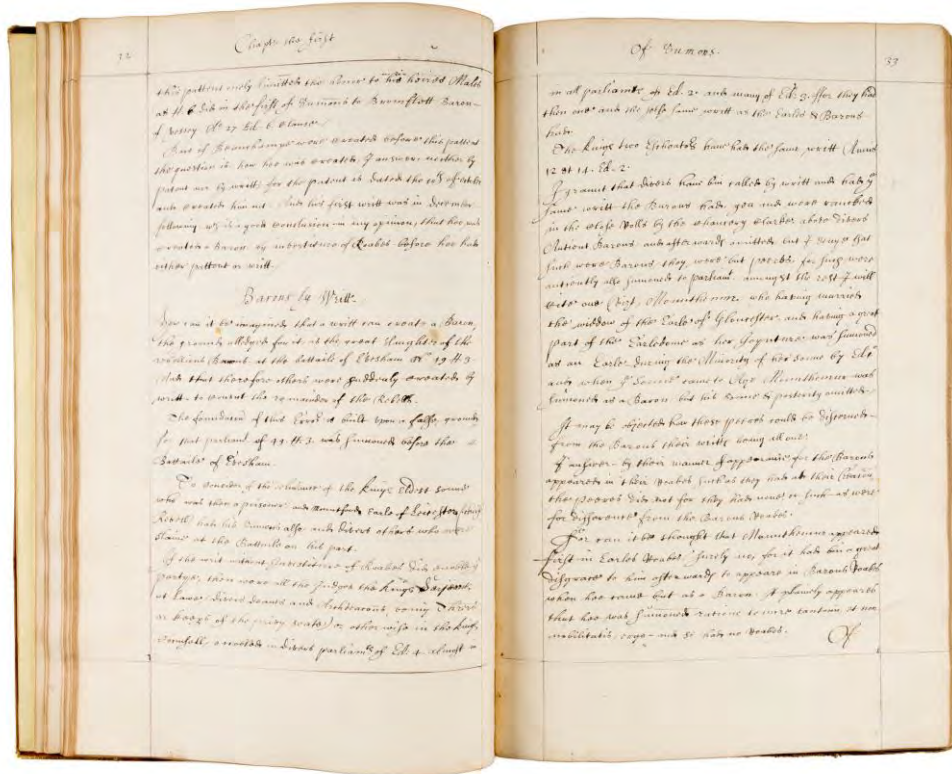 32
Chapt: the first
this pattent only limitted the honor to his heires Males
as H. 6 did in the first of Sumons to Bromflett Baron
of Vessey Ao 27 H. 6 Clause
But if Beauchampe were Created before this pattent
the question is how hee was Created, I answer neither by
patent nor by writt, for the patent is dated the 10th of October
and Created him not. And his first writt was in December
following wch is a good Conclusion in my opinion, that hee was
Created a Baron by investiture of Roabes before hee had
either pattent or writt.
Barons by Writt.
How can it be imagined that a writt can create a Baron,
the grounds alledged for it, is the great slaughter of the
rebellious Barons at the battaile of Evesham Ao 49 H. 3.
and that therefore others were suddenly created by
writt to Counter the remainder of the Rebells.
The foundation of this Error is built upon a false ground
for that parliamt of 49. H. 3. was sumoned before the
Battaile of Evesham.
To consider of the absence of the Kings eldest sonne
who was then a prisoner and Mountford Earle of Leicester being
Rebell had his Sumons also and divers others who were
slaine at the Battaile on his part.
If the writ without Investiture of Roabes did ennoble ye
partyes, then were all the Judges the Kings Serjeants
at Lawe, divers Deanes and Archdeacons,
or keeps of the privy seale, or other wise in the Kings
Counsell, created in divers parliamts of Ed: 1. almost
Of Sumons.
33
in all parliamts of Ed. 2. and many of Ed: 3. ffor they had
then one and the selfe same writt as the Earles & Barons
had.
The Kings two Eschators have had the same writt Anno
12 et 14. Ed. 2.
I graunt that divers have bin called by writt and had ye
same writt the Barons had, yea and were rancked
in the Close Rolls by the Chancery Clarkes above divers
Antient Barons and afterwards omitted, but I deny that
such were Barons they were but peeres for such were
antiently also sumoned to parliamt. amongst the rest I will
cite one (vizt) Mounthermr. who having married
the widdow of the Earle of Glocester and having a great
part of the Earledome as her Joynture was sumoned
as an Earle during the Minority of her sonne by Ed: 1
and when ye sonne came to Age Mounthermr was
sumoned as a Baron but his sonne & posterity omitted.
It may be objected how those peeres could be discerned
from the Barons their writts being all one.
I answer by their manner of apperance for the Barons
appeared in their Roabes such as they had at their Creation
the peeres did not for they had none or such as were
for difference from the Barons Roabes.
Nor can it be thought that Mounthermr appeared
first in Earles Roabes, surely no, for it had bin a great
disgrace to him afterwards to appeare in Barons Roabes
when hee came but as a Baron. It plainely appeares
that hee was sumoned ratione tenure tantum et non
nobilitatis, ergo and so had no Roabes.
Of